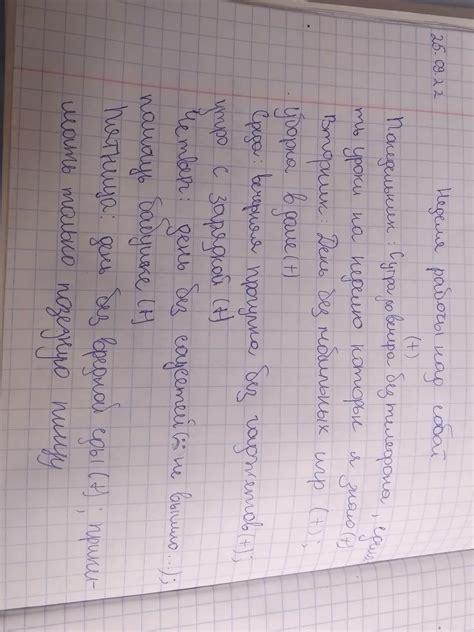 25.09.22
Неделя работы над собой
(+)
Понедельник: Сутра до вечера без телефона, сдела
ть уроки на неделю которые я знаю(+)
Вторник: День без мобильных игр (+);
уборка в доме (+)
Среда: вечерняя прогулка без гаджетов(+);
утро с зарядкой (+)
Четверг: день без соцсетей (не вышло...);
помощь бабушке (+)
Пятница: день без вредной еды (+); прини-
мать только полезную пищу